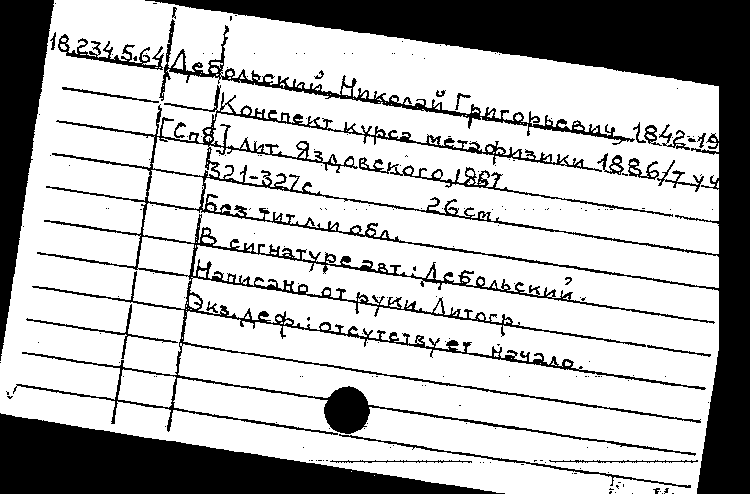 18.234.5.64 Дебольский, Николай Григорьевич, 1842-19
Конспект курса метафизики 1886/7 уч
[Спб.], лит. Яздовского, 1887.
321-327 с. 26 см.
Без тит. л. и обл.
В сигнатуре авт.: Дебольский.
Написано от руки. Литогр.
Экз. деф.: отсутствует начало.